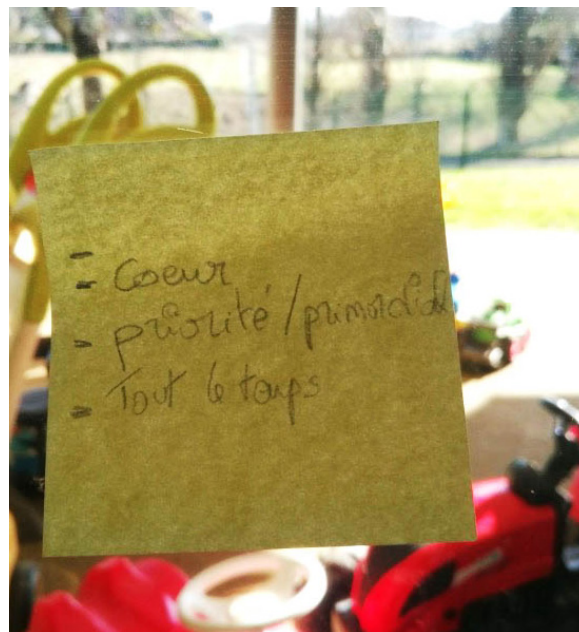 - Coeur
- priorité/primordial
- Tout le temps